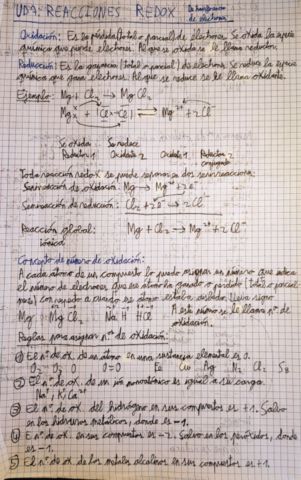 UD7: REACCIONES REDOX De transferencia
de electrones
Oxidación: Es la pérdida (total o parcial) de electrones. Se oxida la especie
química que pierde electrones. Al que se oxida se le llama reductor.
Reducción: Es la ganancia (total o parcial) de electrones. Se reduce la especie
química que gana electrones. Al que se reduce se le llama oxidante.
Ejemplo: Mg + Cl₂ → MgCl₂
Mg²⁺ + 2Cl⁻
Se oxida Se reduce
Reductor 1 Oxidante 2 Oxidante 1 Reductor 2
conjugado
Toda reacción redox se puede separar en dos semirreacciones:
Semirreacción de oxidación: Mg → Mg²⁺ + 2e⁻
Semirreacción de reducción: Cl₂ + 2e⁻ → 2Cl⁻
Reacción global: Mg + Cl₂ → Mg²⁺ + 2Cl⁻
iónica
Concepto de número de oxidación:
A cada átomo de un compuesto lo puedo asignar un número que indica
el número de electrones que ese átomo ha ganado o perdido (total o parcial-
mente) con respecto a cuando ese átomo estaba aislado. Lleva signo.
Mg MgCl₂ Na H HCl A este número se le llama nº de
oxidación.
Reglas para asignar n.ᵒˢ de oxidación:
① El nº de ox. de un átomo en una sustancia elemental es 0.
O₂ O₃ O O=O Fe Cu Ag N₂ Cl₂ S₈
② El nº de ox. de un ión monoatómico es igual a su carga.
Na⁺, K⁺, Ca²⁺
③ El nº de ox. del hidrógeno en sus compuestos es +1. Salvo
en los hidruros metálicos, donde es -1.
④ El nº de ox. en sus compuestos es -2. Salvo en los peróxidos, donde
es -1.
⑤ El nº de ox. de los metales alcalinos en sus compuestos es +1.